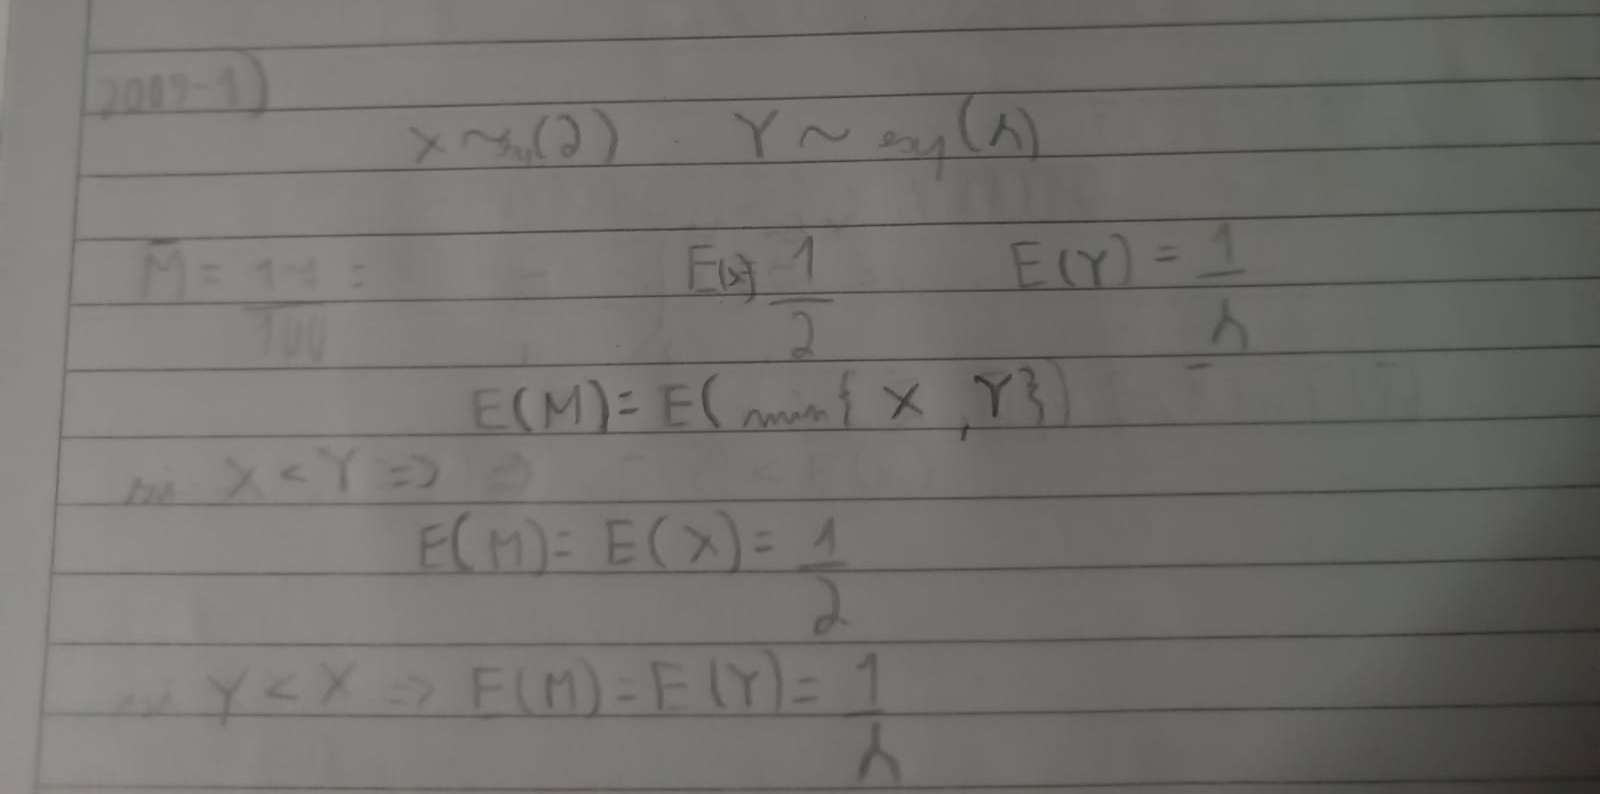 2009-1)
X ~ exp(2) . Y ~ exp(λ)
M̄ = 1·1/100 = E(x) = 1/2 E(Y) = 1/λ
E(M) = E( min{ X , Y})
si X < Y =>
E(M) = E(X) = 1/2
si Y < X => E(M) = E(Y) = 1/λ